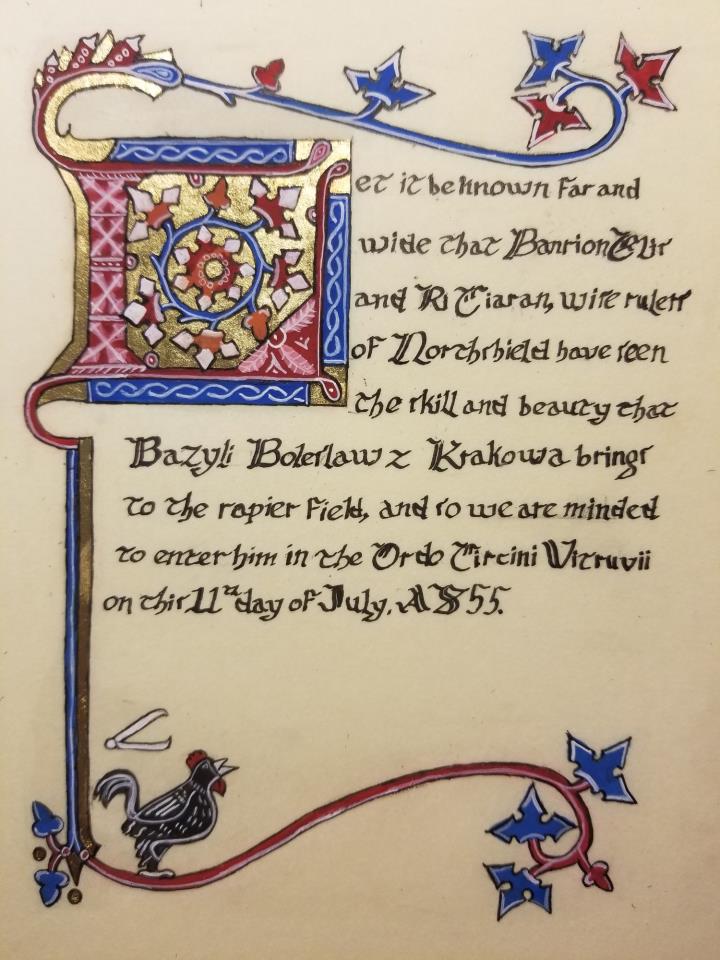 Let it be known far and
wide that Banrion Elis
and Ri Ciaran, wise rulers
of Northshield have seen
the skill and beauty that
Bazyli Boleslaw z Krakowa brings
to the rapier field, and so we are minded
to enter him in the Ordo Circini Vitruvii
on this 11th day of July, AS 55.